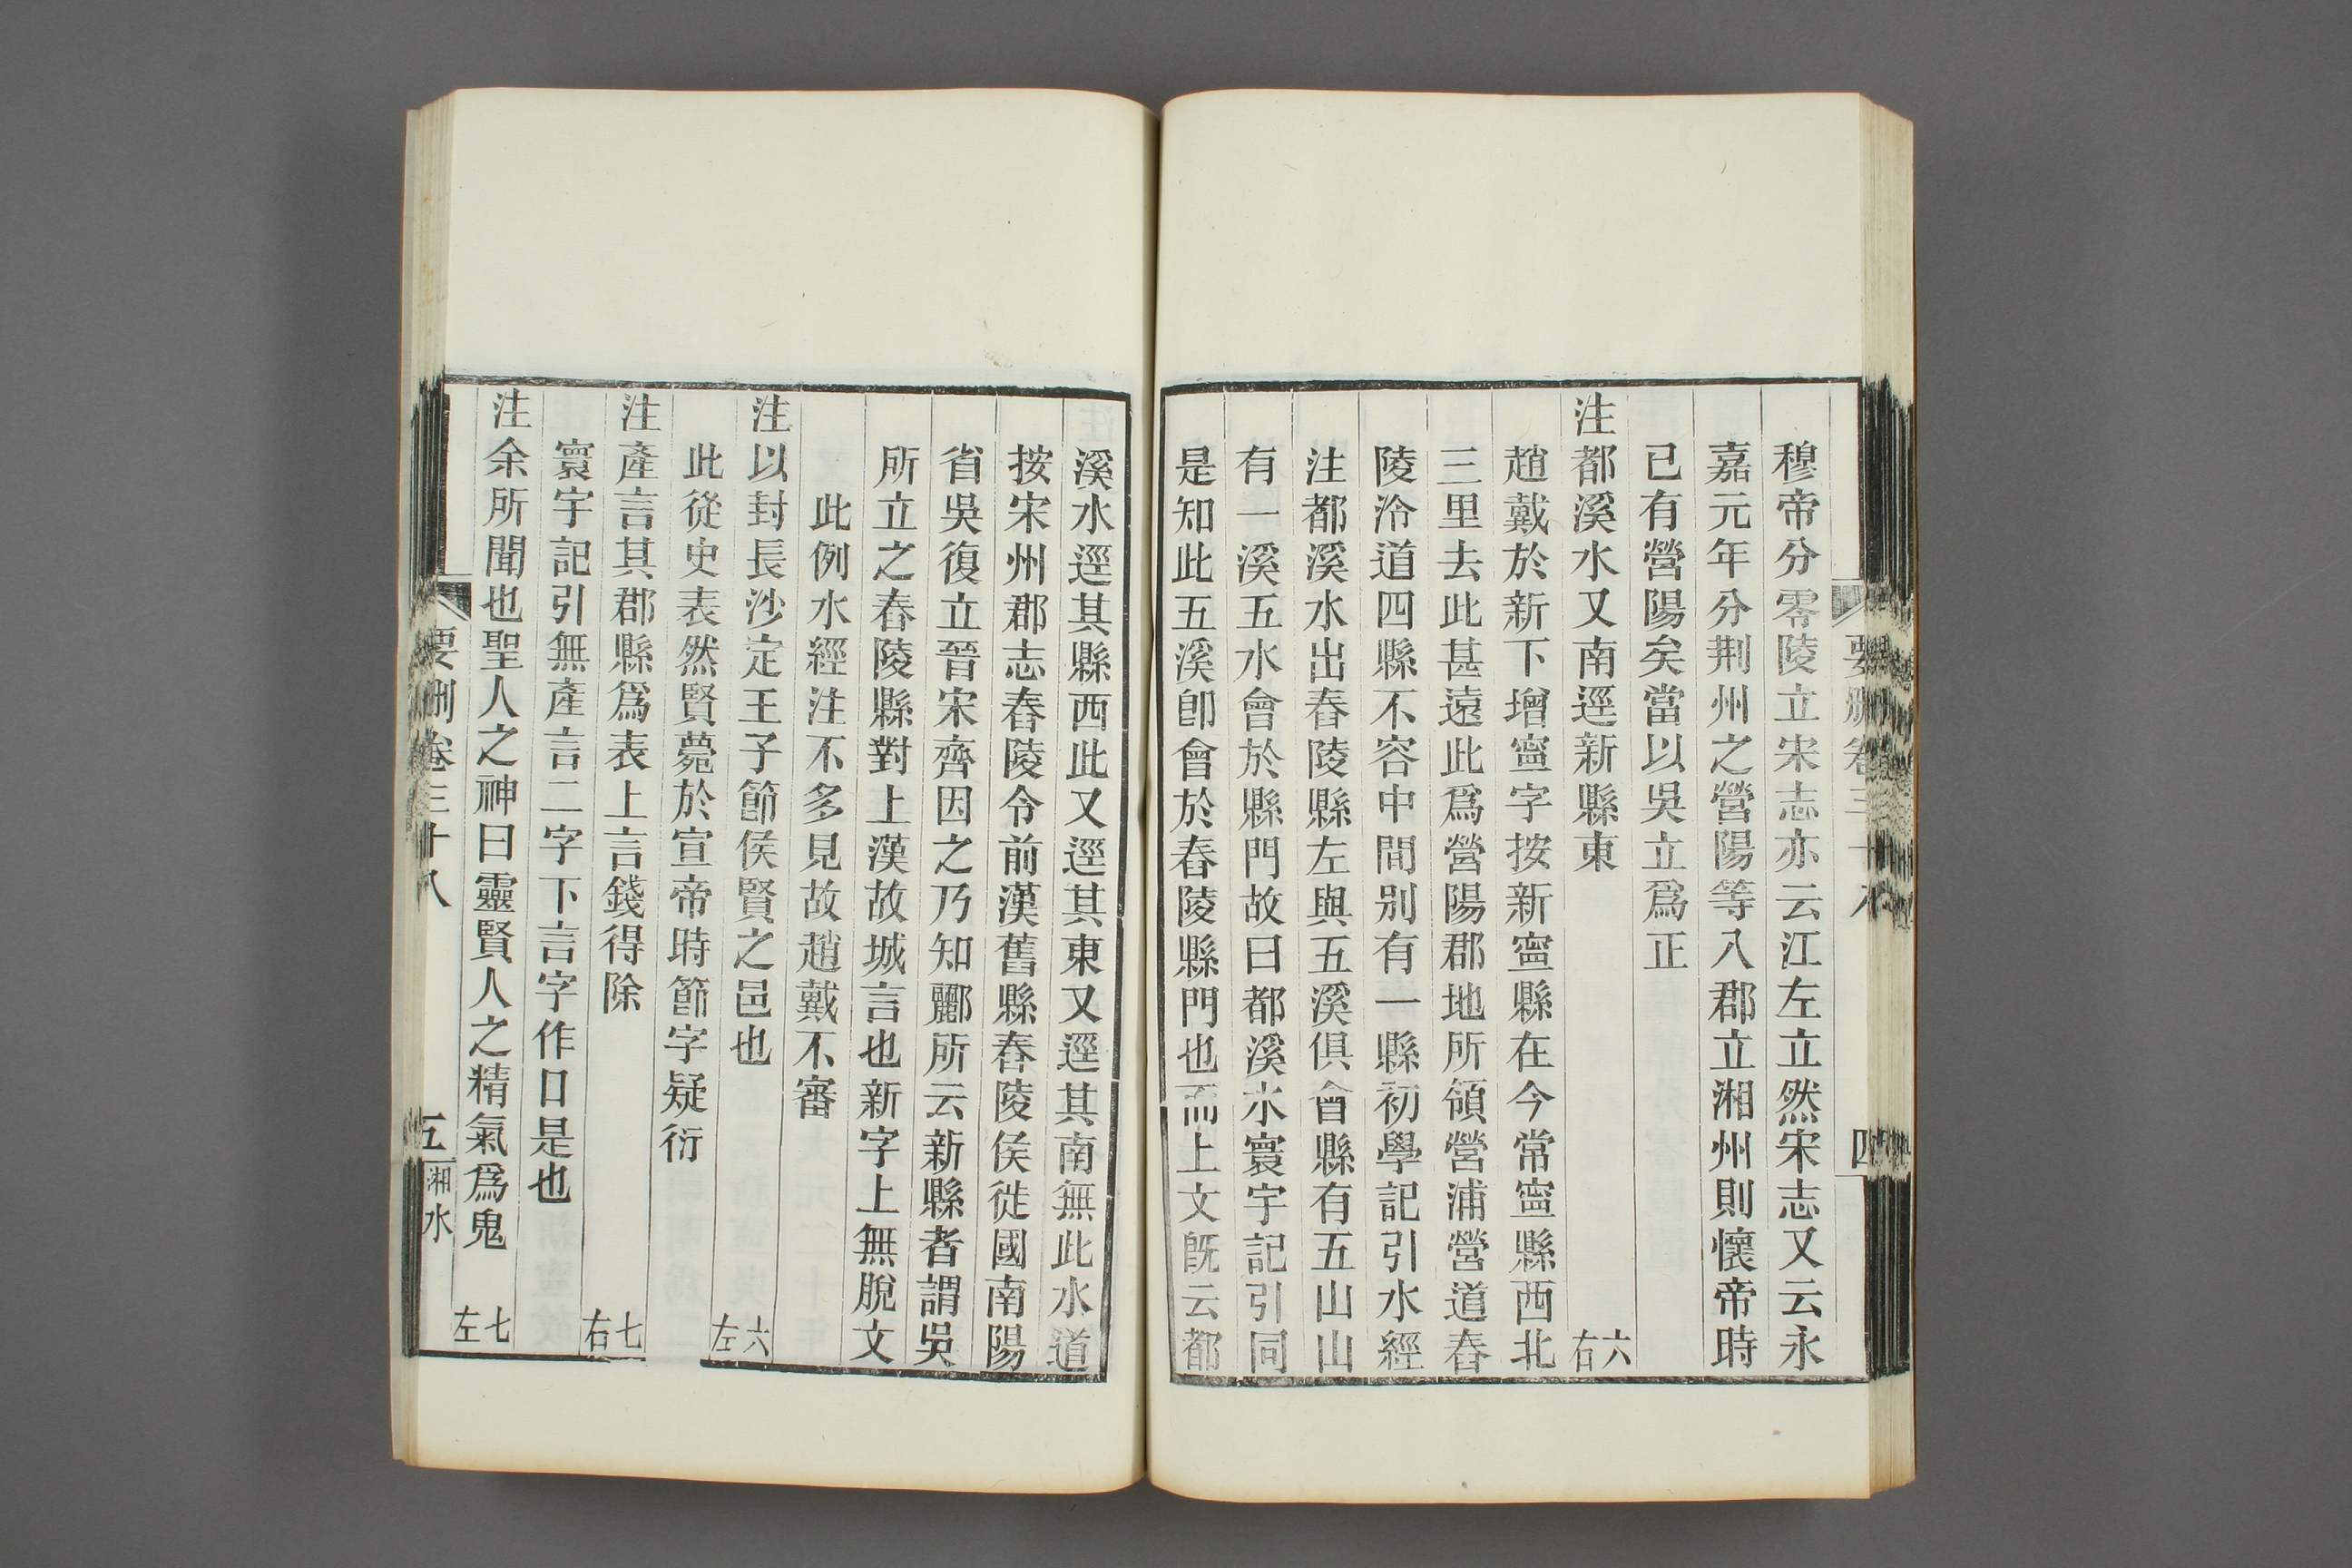 穆帝分零陵立宋志亦云江左立然宋志又云永
嘉元年分荆州之營陽等八郡立湘州則懷帝時
已有營陽矣當以吳立爲正
注都溪水又南逕新縣東 六右
趙戴於新下增寍字按新寍縣在今常寍縣西北
三里去此甚遠此爲營陽郡地所領營浦營道舂
陵泠道四縣不容中間别有一縣初學記引水經
注都溪水出舂陵縣左與五溪俱會縣有五山山
有一溪五水會於縣門故曰都溪水寰宇記引同
是知此五溪卽會於舂陵縣門也而上文旣云都
溪水逕其縣西此又逕其東又逕其南無此水道
按宋州郡志舂陵令前漢舊縣舂陵侯徙國南陽
省吳復立晉宋齊因之乃知酈所云新縣者謂吳
所立之舂陵縣對上漢故城言也新字上無脫文
此例水經注不多見故趙戴不審
注以封長沙定王子節侯賢之邑也 六左
此從史表然賢薨於宣帝時節字疑衍
注產言其郡縣爲表上言錢得除 七右
寰宇記引無產言二字下言字作口是也
注余所聞也聖人之神曰靈賢人之精氣爲鬼 七左
要删卷三十八 五 湘水